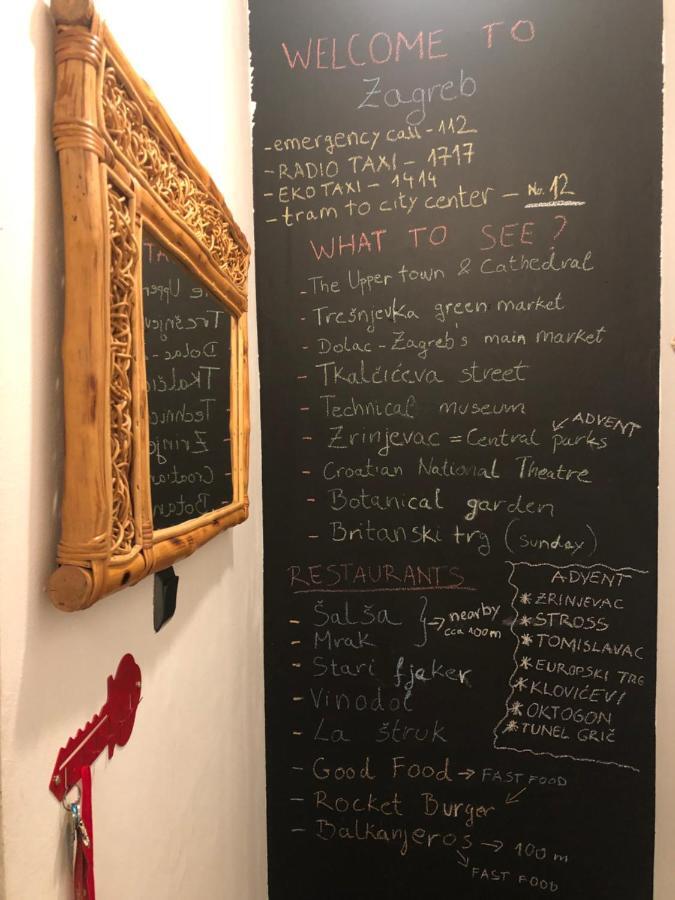 WELCOME TO
Zagreb
-emergency call - 112
-RADIO TAXI - 1717
-EKO TAXI - 1414
-tram to city center - No. 12
WHAT TO SEE?
- The Upper town & Cathedral
- Trešnjevka green market
- Dolac - Zagreb's main market
- Tkalčićeva street
- Technical museum
- Zrinjevac = Central parks ↙ ADVENT
- Croatian National Theatre
- Botanical garden
- Britanski trg (sunday)
RESTAURANTS
- Šalša
- Mrak
} → nearby
cca 100m
- Stari fjaker
- Vinodol
- La štruk
- Good Food → FAST FOOD
- Rocket Burger ↙
- Balkanjeros → 100 m
↘ FAST FOOD
ADVENT
* ZRINJEVAC
* STROSS
* TOMISLAVAC
* EUROPSKI TRG
* KLOVIĆEVI
* OKTOGON
* TUNEL GRIČ